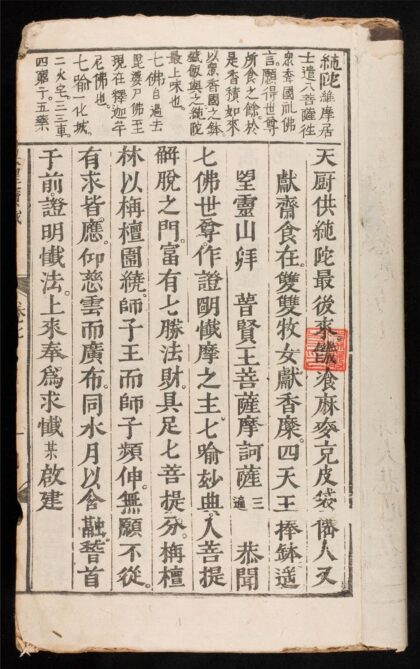 純陀 維摩居
士遣八菩薩徃
眾香國礼佛
言願得世尊
所食之餘於
是香積如來
以眾香國之鉢
盛飯與之純陀
最上味也。
七佛自過去
毘婆尸佛王
現在釋迦牟
尼佛也。
七喻一化城
二火宅三三車
四窮子五藥
天厨供純陀最後來。饑飡麻麥克皮袋。儔人又
獻齋食在。雙雙牧女獻香糜。四天王捧鉢遥
望靈山拜 普賢王菩薩摩訶薩 三遍 恭聞
七佛世尊。作證明懺摩之主。七喻玅典。入菩提
解脫之門。富有七勝法財。具足七菩提分。栴檀
林以栴檀圍繞。師子王而師子頻伸。無願不從。
有求皆應。仰慈雲而廣布。同水月以含融。稽首
于前。證明懺法。上來奉爲求懺某 啟建